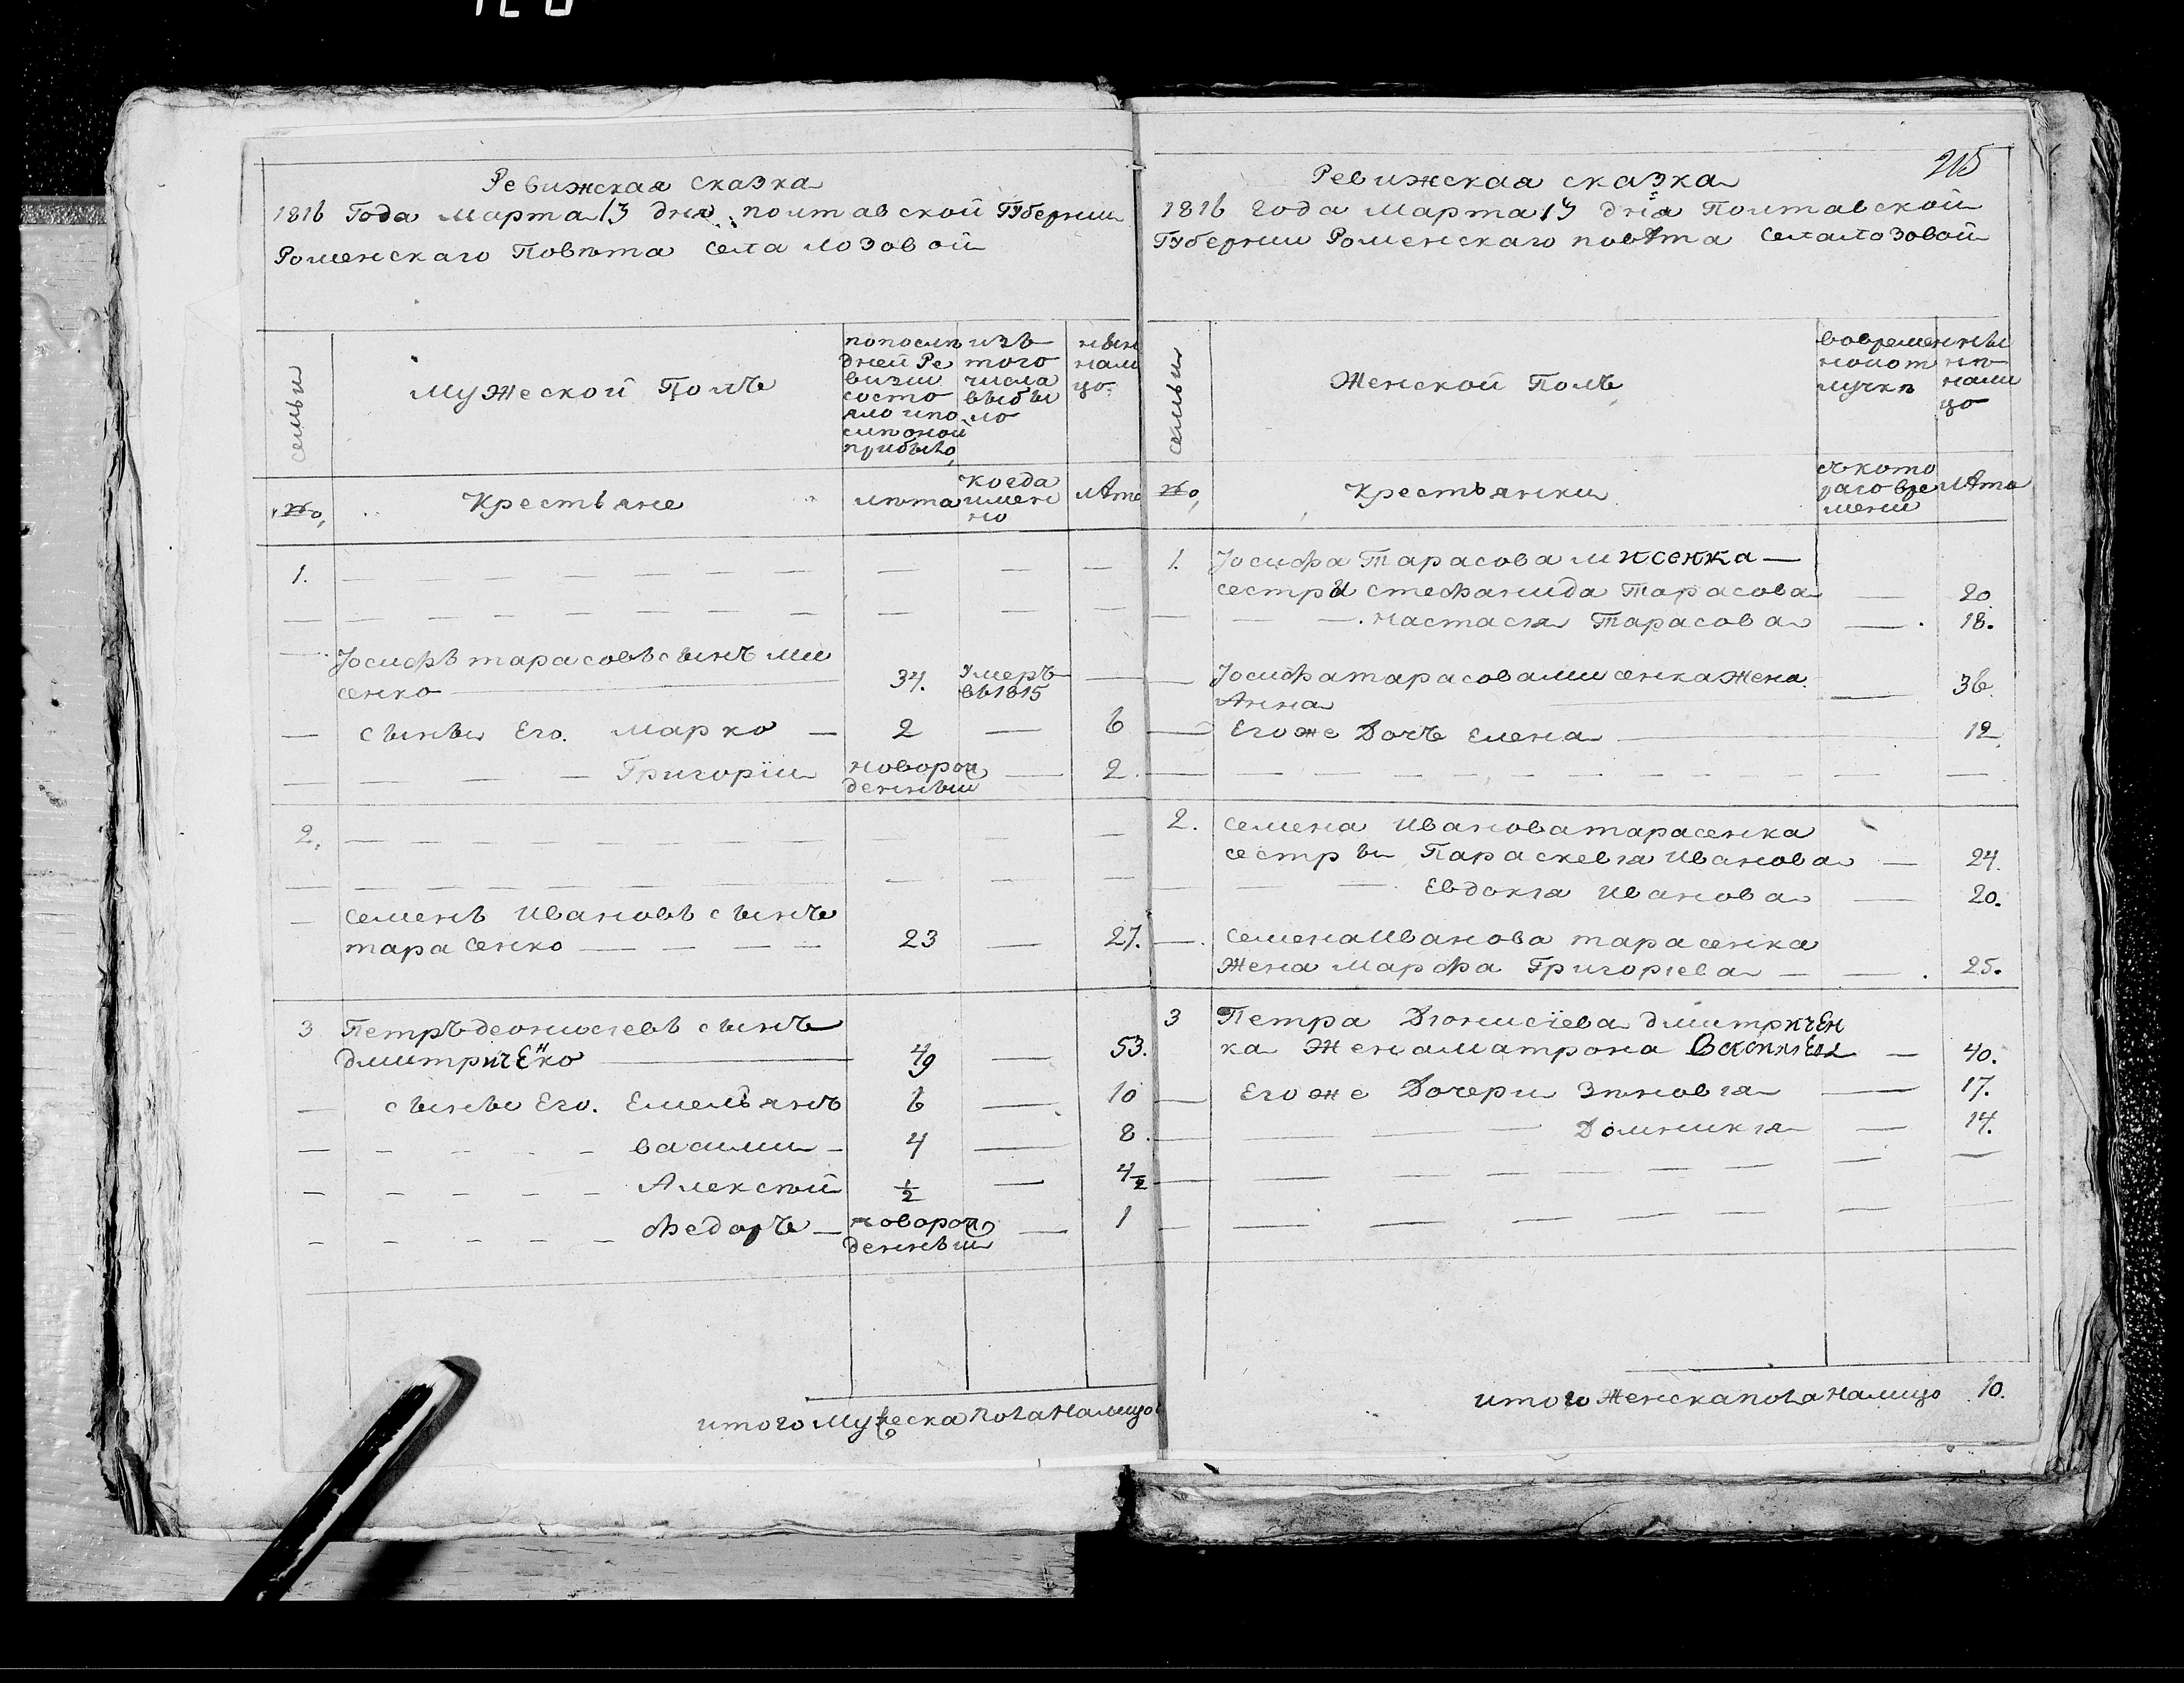 Ревижская сказка
1816 Года Марта 13 дня полтавской Губернии
Роменскаго Повѣта Села Лозовой
семьи
Мужеской Полъ
попослѣ
дней Ре
визии
состо
яло ипо
слѣ оной
прибыло,
изъ
того
числа
выбы
ло
нын
нали
цо.
№,
Крестьяне
лѣта
когда
имен
но
лѣта
1.
Іосифъ тарасовъ сынъ ми
сенко
34.
Умеръ
въ 1815
сыны Его. Марко
2
6
Григоріи
новорож
денный
2.
2.
Семенъ Ивановъ сынъ
тарасенко
23
27.
3
Петръ деонисіевъ сынъ
дмитриченко
49
53.
сыны Его. Емельянъ
6
10
василии
4
8.
Алексѣй
1/2
4 1/2
Федоръ
новорож
денный
1
итого Мужеска пола налицо
215
Ревижская сказка
1816 года Марта 13 дня Полтавской
Губернии Роменскаго повѣта Села Лозовой
семьи
Женской Полъ,
вовремен
ной от
лучкѣ
ны
нѣ
нали
цо
№,
Крестьянки
съкото
раго вре
мени
лѣта
1.
Іосифа Тарасова мисенка
сестры стефанида Тарасова
20.
Настасія Тарасова
18.
Іосифа тарасова мисенка жена
Анна
36.
Егоже Дочъ Елена
12.
2.
Семена Иванова тарасенка
сестры Параскевія Иванова
24.
Евдокія Иванова
20.
Семена Иванова тарасенка
Жена Марфа Григоріева
25.
3
Петра Діонисіева дмитричен
ка Жена Матрона
40.
Егоже Дочери Зѣновія
17.
Домникія
14.
итого Женска пола налицо 10.